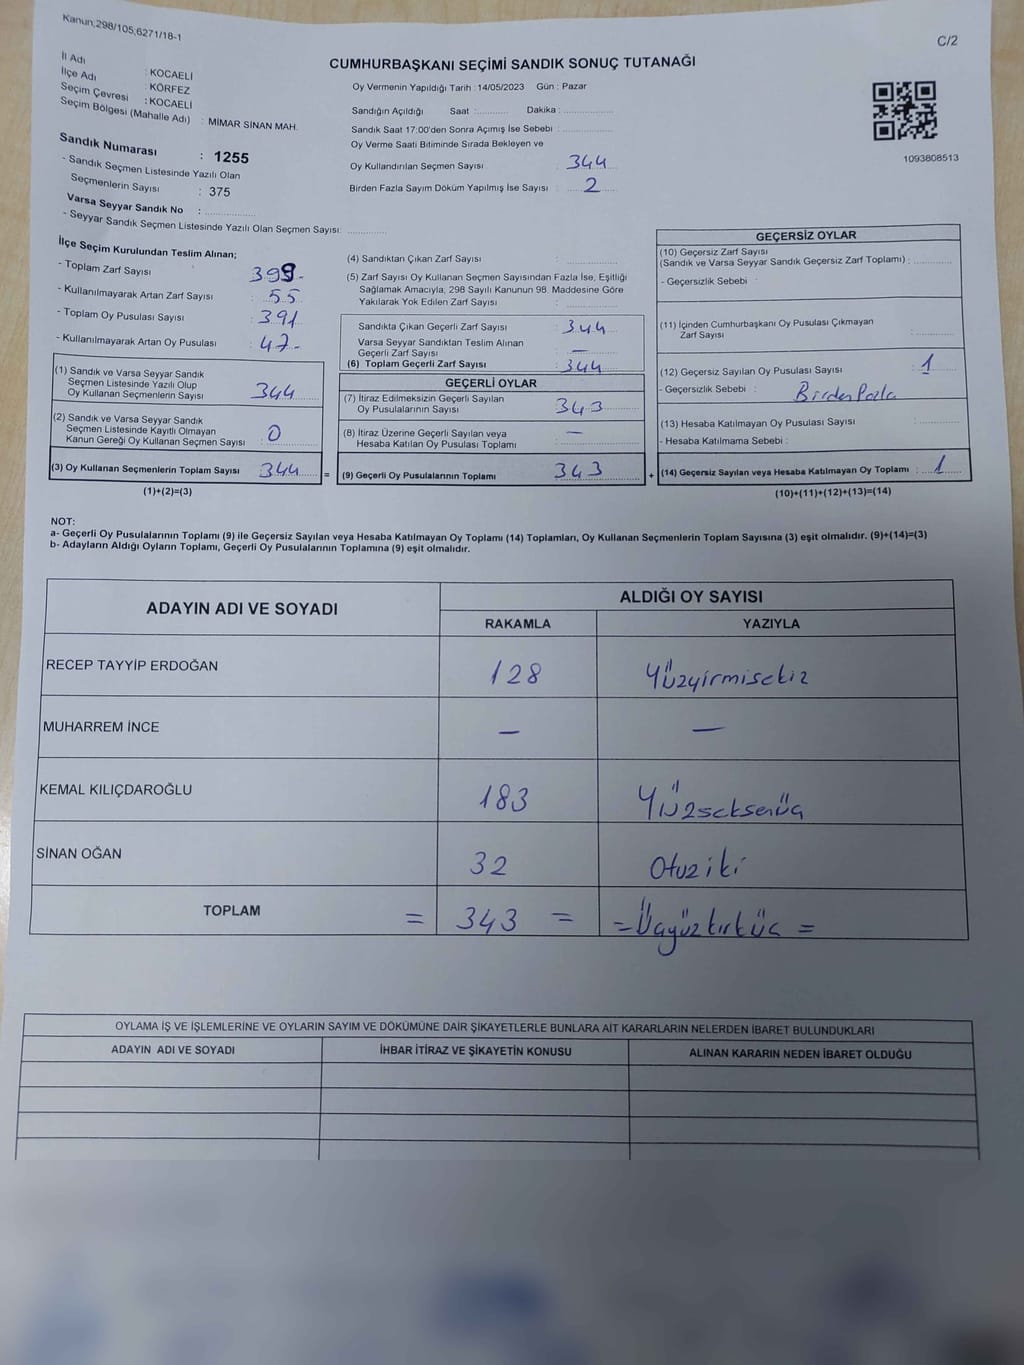 Kanun;298/105,6271/18-1
C/2
CUMHURBAŞKANI SEÇİMİ SANDIK SONUÇ TUTANAĞI
İl Adı : KOCAELİ
İlçe Adı : KÖRFEZ
Seçim Çevresi : KOCAELİ
Seçim Bölgesi (Mahalle Adı) : MİMAR SİNAN MAH.
Oy Vermenin Yapıldığı Tarih : 14/05/2023 Gün : Pazar
Sandığın Açıldığı Saat :............ Dakika :..................
Sandık Saat 17:00'den Sonra Açımış İse Sebebi :..................
Oy Verme Saati Bitiminde Sırada Bekleyen ve
Oy Kullandırılan Seçmen Sayısı : 344
Birden Fazla Sayım Döküm Yapılmış İse Sayısı : 2
1093808513
Sandık Numarası : 1255
- Sandık Seçmen Listesinde Yazılı Olan
Seçmenlerin Sayısı : 375
Varsa Seyyar Sandık No : ..................
- Seyyar Sandık Seçmen Listesinde Yazılı Olan Seçmen Sayısı: ..............
İlçe Seçim Kurulundan Teslim Alınan;
- Toplam Zarf Sayısı : 399-
- Kullanılmayarak Artan Zarf Sayısı : 55
- Toplam Oy Pusulası Sayısı : 391
- Kullanılmayarak Artan Oy Pusulası : 47-
(1) Sandık ve Varsa Seyyar Sandık
Seçmen Listesinde Yazılı Olup
Oy Kullanan Seçmenlerin Sayısı : 344
(2) Sandık ve Varsa Seyyar Sandık
Seçmen Listesinde Kayıtlı Olmayan
Kanun Gereği Oy Kullanan Seçmen Sayısı : 0
(3) Oy Kullanan Seçmenlerin Toplam Sayısı : 344 =
(1)+(2)=(3)
(4) Sandıktan Çıkan Zarf Sayısı : ..................
(5) Zarf Sayısı Oy Kullanan Seçmen Sayısından Fazla İse, Eşitliği
Sağlamak Amacıyla, 298 Sayılı Kanunun 98. Maddesine Göre
Yakılarak Yok Edilen Zarf Sayısı : ..................
Sandıkta Çıkan Geçerli Zarf Sayısı : 344
Varsa Seyyar Sandıktan Teslim Alınan
Geçerli Zarf Sayısı : —
(6) Toplam Geçerli Zarf Sayısı : 344
GEÇERLİ OYLAR
(7) İtiraz Edilmeksizin Geçerli Sayılan
Oy Pusulalarının Sayısı : 343
(8) İtiraz Üzerine Geçerli Sayılan veya
Hesaba Katılan Oy Pusulası Toplamı : —
(9) Geçerli Oy Pusulalarının Toplamı : 343 +
GEÇERSİZ OYLAR
(10) Geçersiz Zarf Sayısı
(Sandık ve Varsa Seyyar Sandık Geçersiz Zarf Toplamı) : ..............
- Geçersizlik Sebebi
(11) İçinden Cumhurbaşkanı Oy Pusulası Çıkmayan
Zarf Sayısı : ..............
(12) Geçersiz Sayılan Oy Pusulası Sayısı : 1
- Geçersizlik Sebebi : Birden Fazla
(13) Hesaba Katılmayan Oy Pusulası Sayısı : ..............
- Hesaba Katılmama Sebebi :
(14) Geçersiz Sayılan veya Hesaba Katılmayan Oy Toplamı : 1
(10)+(11)+(12)+(13)=(14)
NOT:
a- Geçerli Oy Pusulalarının Toplamı (9) ile Geçersiz Sayılan veya Hesaba Katılmayan Oy Toplamı (14) Toplamları, Oy Kullanan Seçmenlerin Toplam Sayısına (3) eşit olmalıdır. (9)+(14)=(3)
b- Adayların Aldığı Oyların Toplamı, Geçerli Oy Pusulalarının Toplamına (9) eşit olmalıdır.
ADAYIN ADI VE SOYADI ALDIĞI OY SAYISI
RAKAMLA YAZIYLA
RECEP TAYYİP ERDOĞAN 128 Yüzyirmisekiz
MUHARREM İNCE — —
KEMAL KILIÇDAROĞLU 183 Yüzseksenüç
SİNAN OĞAN 32 Otuziki
TOPLAM = 343 = =Üçyüzkırküç =
OYLAMA İŞ VE İŞLEMLERİNE VE OYLARIN SAYIM VE DÖKÜMÜNE DAİR ŞİKAYETLERLE BUNLARA AİT KARARLARIN NELERDEN İBARET BULUNDUKLARI
ADAYIN ADI VE SOYADI İHBAR İTİRAZ VE ŞİKAYETİN KONUSU ALINAN KARARIN NEDEN İBARET OLDUĞU